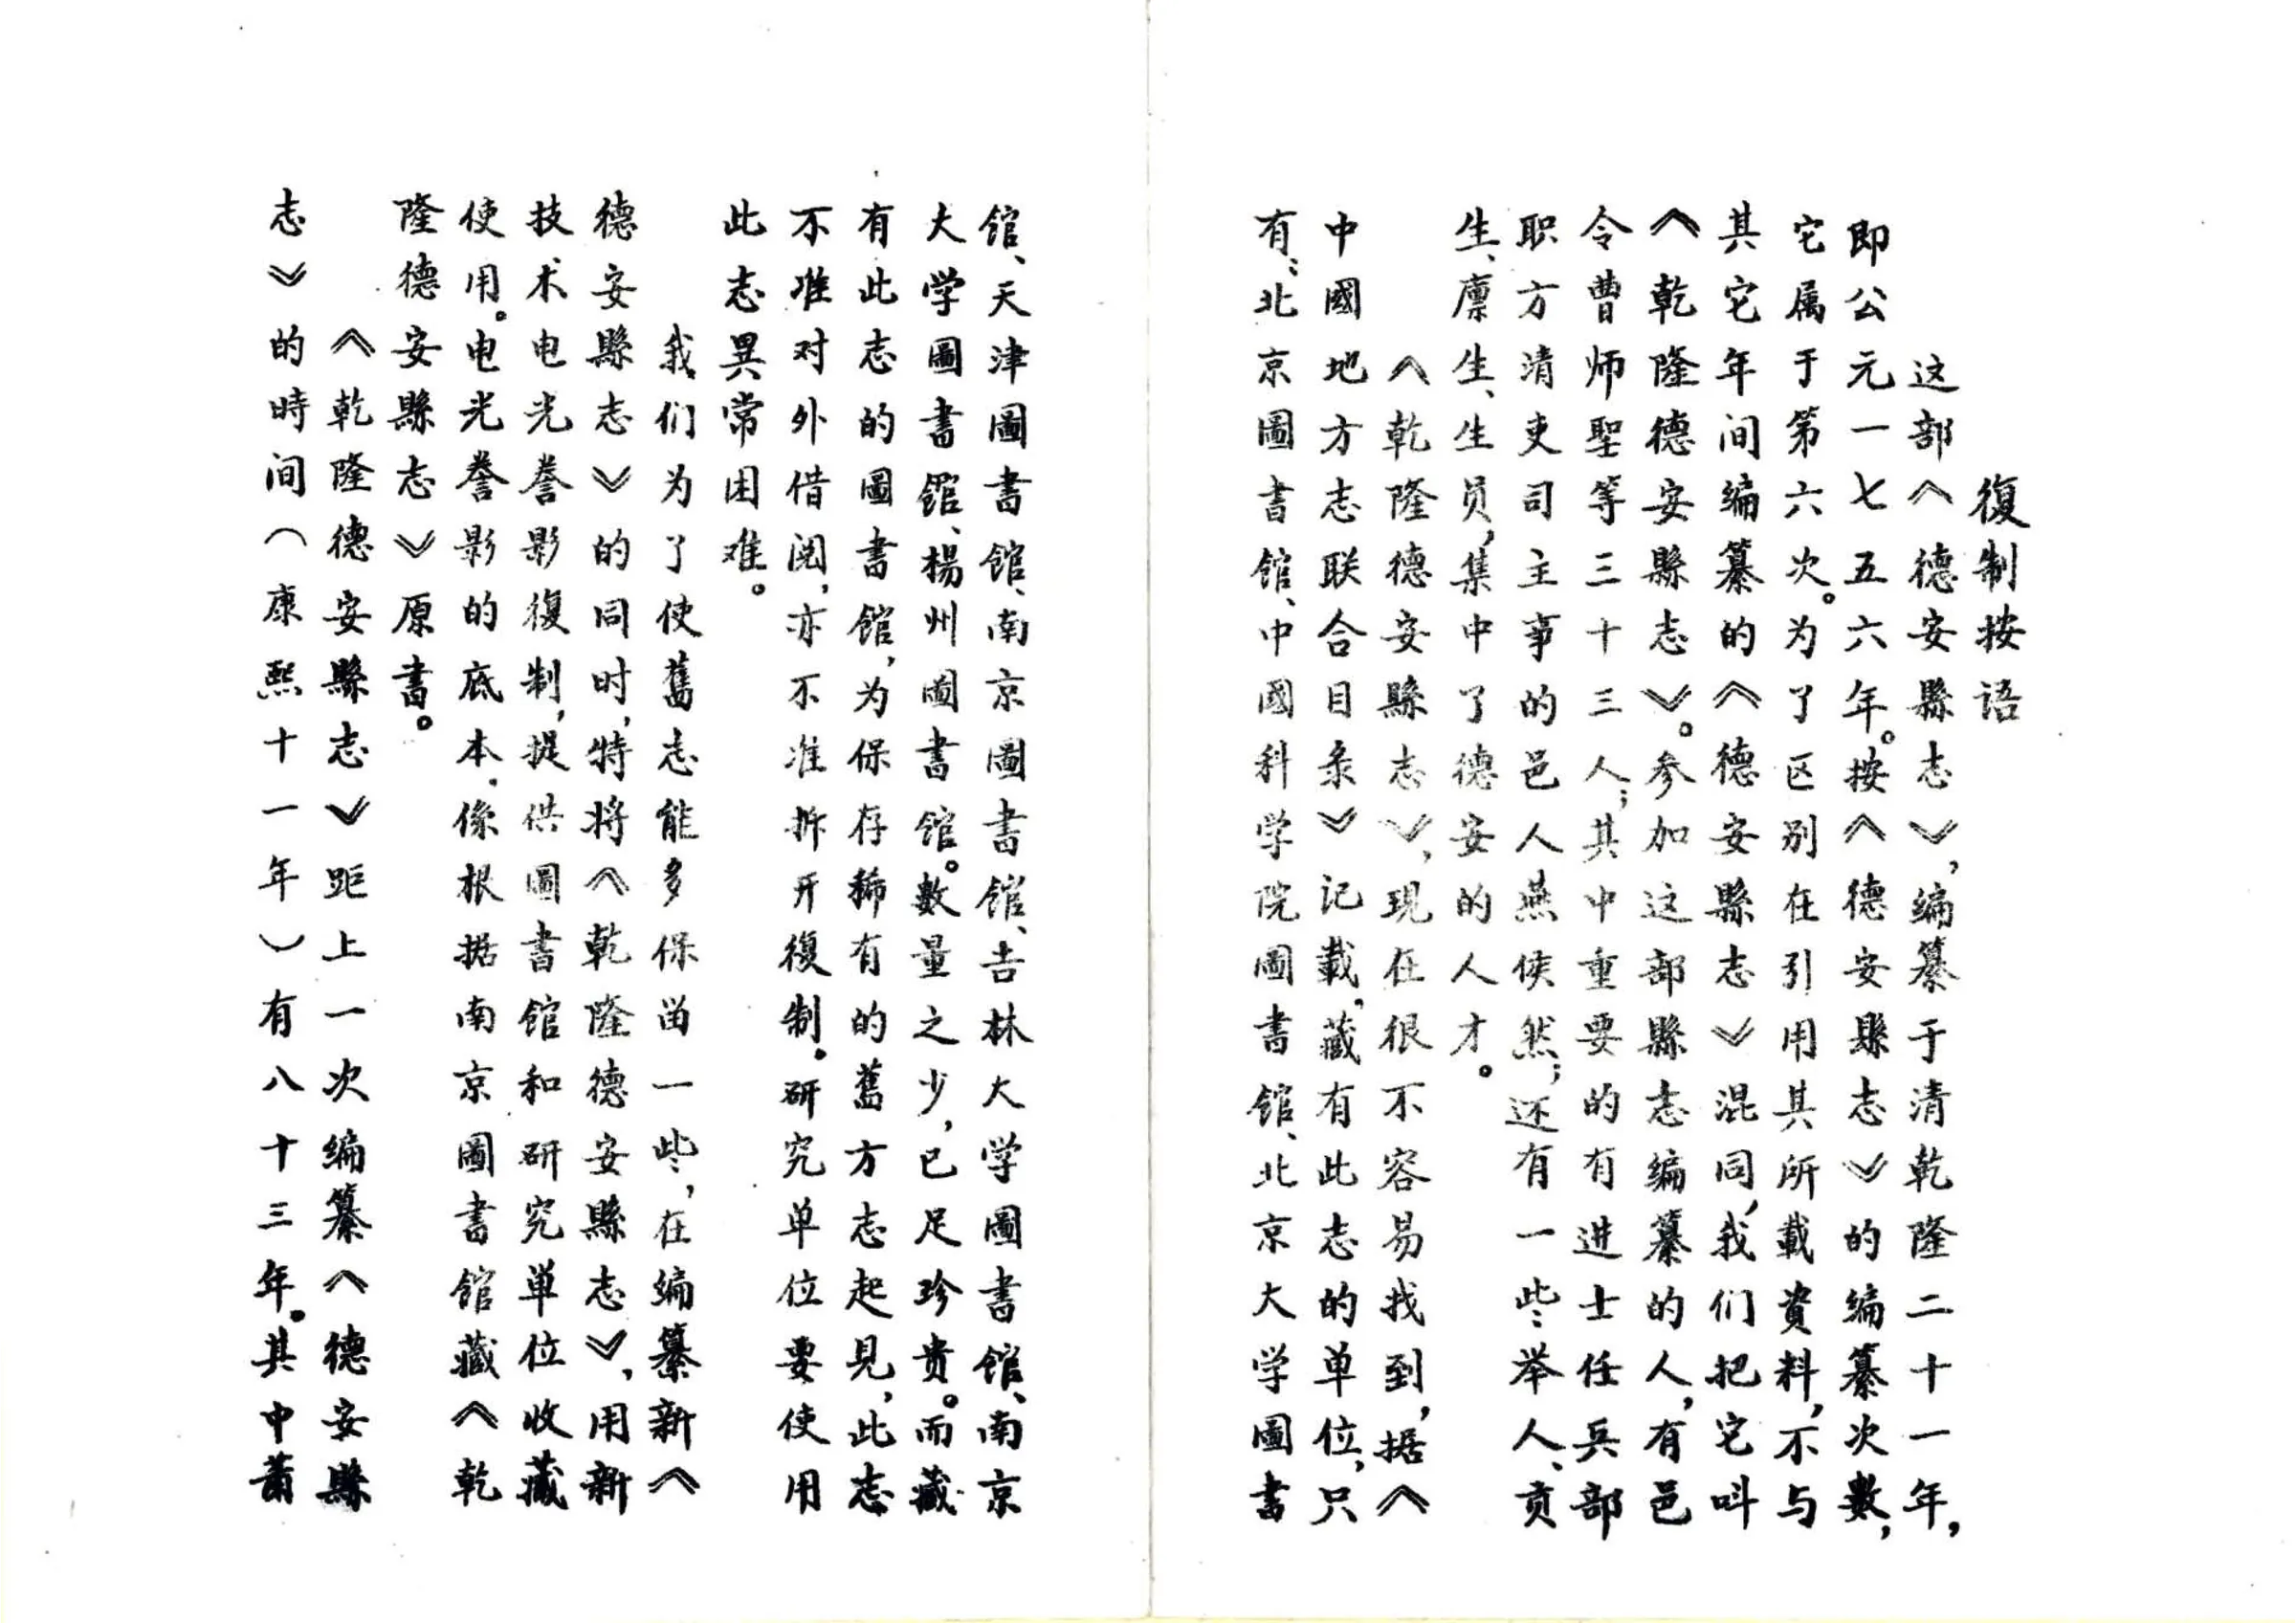 復制按语
这部《德安縣志》，编纂于清乾隆二十一年，
即公元一七五六年。按《德安縣志》的编纂次數，
它属于第六次。为了区别在引用其所載資料，不与
其它年间编纂的《德安縣志》混同，我们把它叫
《乾隆德安縣志》。参加这部縣志编纂的人，有邑
令曹师聖等三十三人；其中重要的有进士任兵部
职方清吏司主事的邑人燕侯然；还有一些举人、贡
生、廪生、生员，集中了德安的人才。
《乾隆德安縣志》，現在很不容易找到，据《
中國地方志联合目录》记載，藏有此志的单位，只
有：北京圖書馆、中國科学院圖書馆、北京大学圖書
馆、天津圖書馆、南京圖書馆、吉林大学圖書馆、南京
大学圖書馆、楊州圖書馆。數量之少，已足珍贵。而藏
有此志的圖書馆，为保存稀有的舊方志起見，此志
不准对外借阅，亦不准拆开復制。研究单位要使用
此志異常困难。
我们为了使舊志能多保畄一些，在编纂新《
德安縣志》的同时，特将《乾隆德安縣志》，用新
技术电光誊影復制，提供圖書馆和研究单位收藏
使用。电光誊影的底本，像根据南京圖書馆藏《乾
隆德安縣志》原書。
《乾隆德安縣志》距上一次编纂《德安縣
志》的時间（康熙十一年）有八十三年。其中蕭